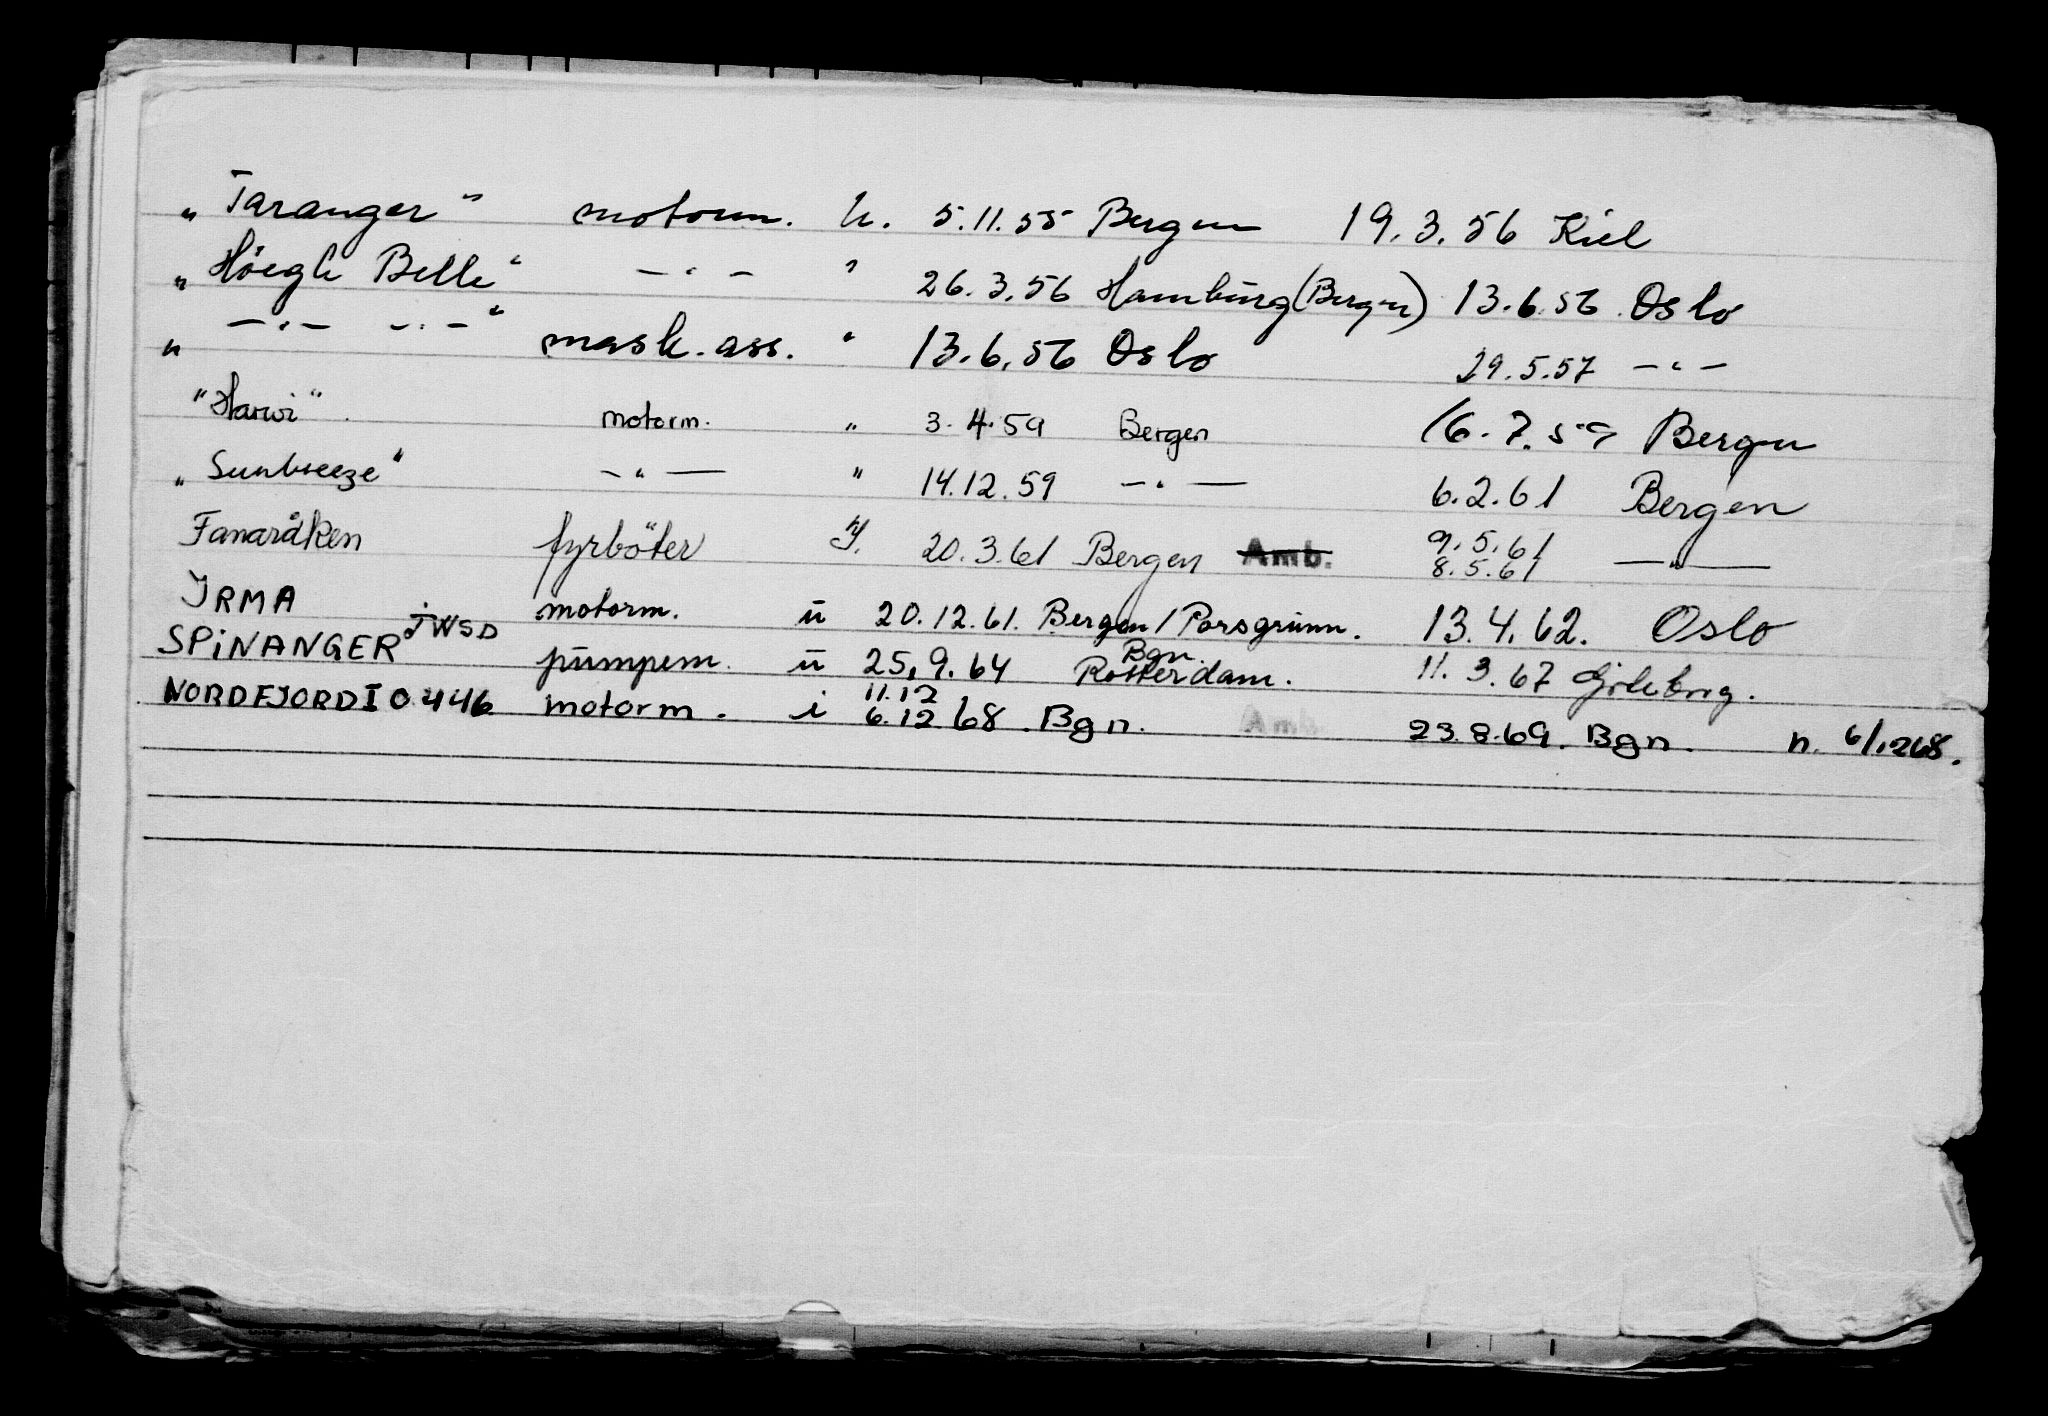 „Taranger" motorm. u. 5.11.55 Bergen 19.3.56 Kiel
„Höegh Belle" — " — " 26.3.56 Hamburg (Bergen) 13.6.56 Oslo
„ — " — — " — " mask.ass. " 13.6.56 Oslo 29.5.57 — " —
"Harwi" motorm. " 3.4.59 Bergen 16.7.59 Bergen
„Sunbreeze" — " — " 14.12.59 — " — 6.2.61 Bergen
Fanaråken fyrböter I. 20.3.61 Bergen Amb. 9.5.61 8.5.61 — " —
IRMA motorm. u 20.12.61. Bergen / Porsgrunn. 13.4.62. Oslo
SPINANGER JWSD pumpem. u 25.9.64 Bgn. Rotterdam. 11.3.67 Göteborg.
NORDFJORD I 0446 motorm. i 11.12 6.12 68. Bgn. Amb 23.8.69. Bgn. n. 6/1268.